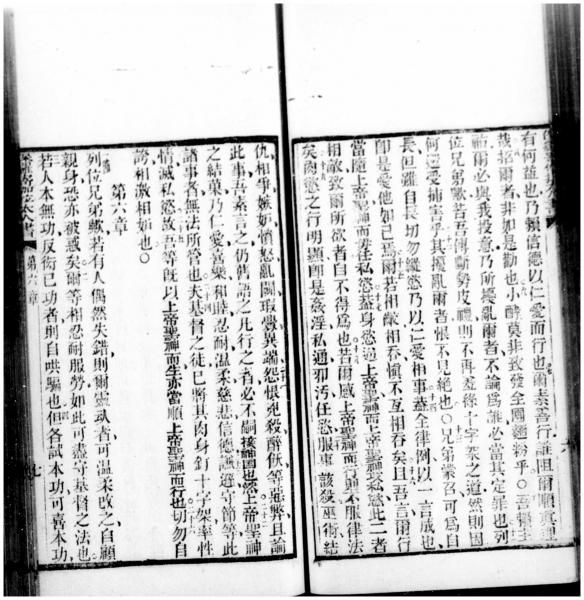 有何益也乃賴信德以仁愛而行也爾素善行誰阻爾順真理
哉招爾者非如是勸也小酵莫非致發全團麵粉乎○吾賴主
福爾必與我投意乃所擾亂爾者不論爲誰必當其定罪也列
位兄弟歟若吾傳斷勢皮禮則不再羞辱十字架之道然則因
何遭逼捕害乎其擾亂爾者恨不見絕也○兄弟蒙召可爲自
長但雖自長切勿縱慾乃以仁愛相事蓋全律例以一言成也
即是愛他如己焉爾若相齩相吞愼不互相吞矣且吾言爾行
當隨上帝聖神而毋任私慾蓋身慾逆上帝聖神而上帝聖神逆慾此二者
相敵致爾所欲者自不得爲也若爾感上帝聖神而行則不服律法
矣肉慾之行明顯即是姦淫私通邪汚任慾服事該殺巫術結
仇相爭嫉妒憤怒亂鬬瑕釁異端怨恨兇殺醉飲等逝弊且論
此事吾素言之仍舊語之凡行之者必不嗣接神國也然上帝聖神
之結菓乃仁愛喜樂和睦忍耐温柔慈悲信德謙遜守節等此
諸事者無法所管也夫基督之徒已將其肉身釘十字架率性
情滅私慾故吾等既以上帝聖神而生亦當順上帝聖神而行也切勿自
誇相激相妒也○
第六章
列位兄弟歟若有人偶然失錯則爾靈氣者可温柔改之自顧
親身恐亦被惑矣爾等相忍耐服勞如此可盡守基督之法也
若人本無功反衒已功者則自哄騙也但各試本功可喜本功
第六章